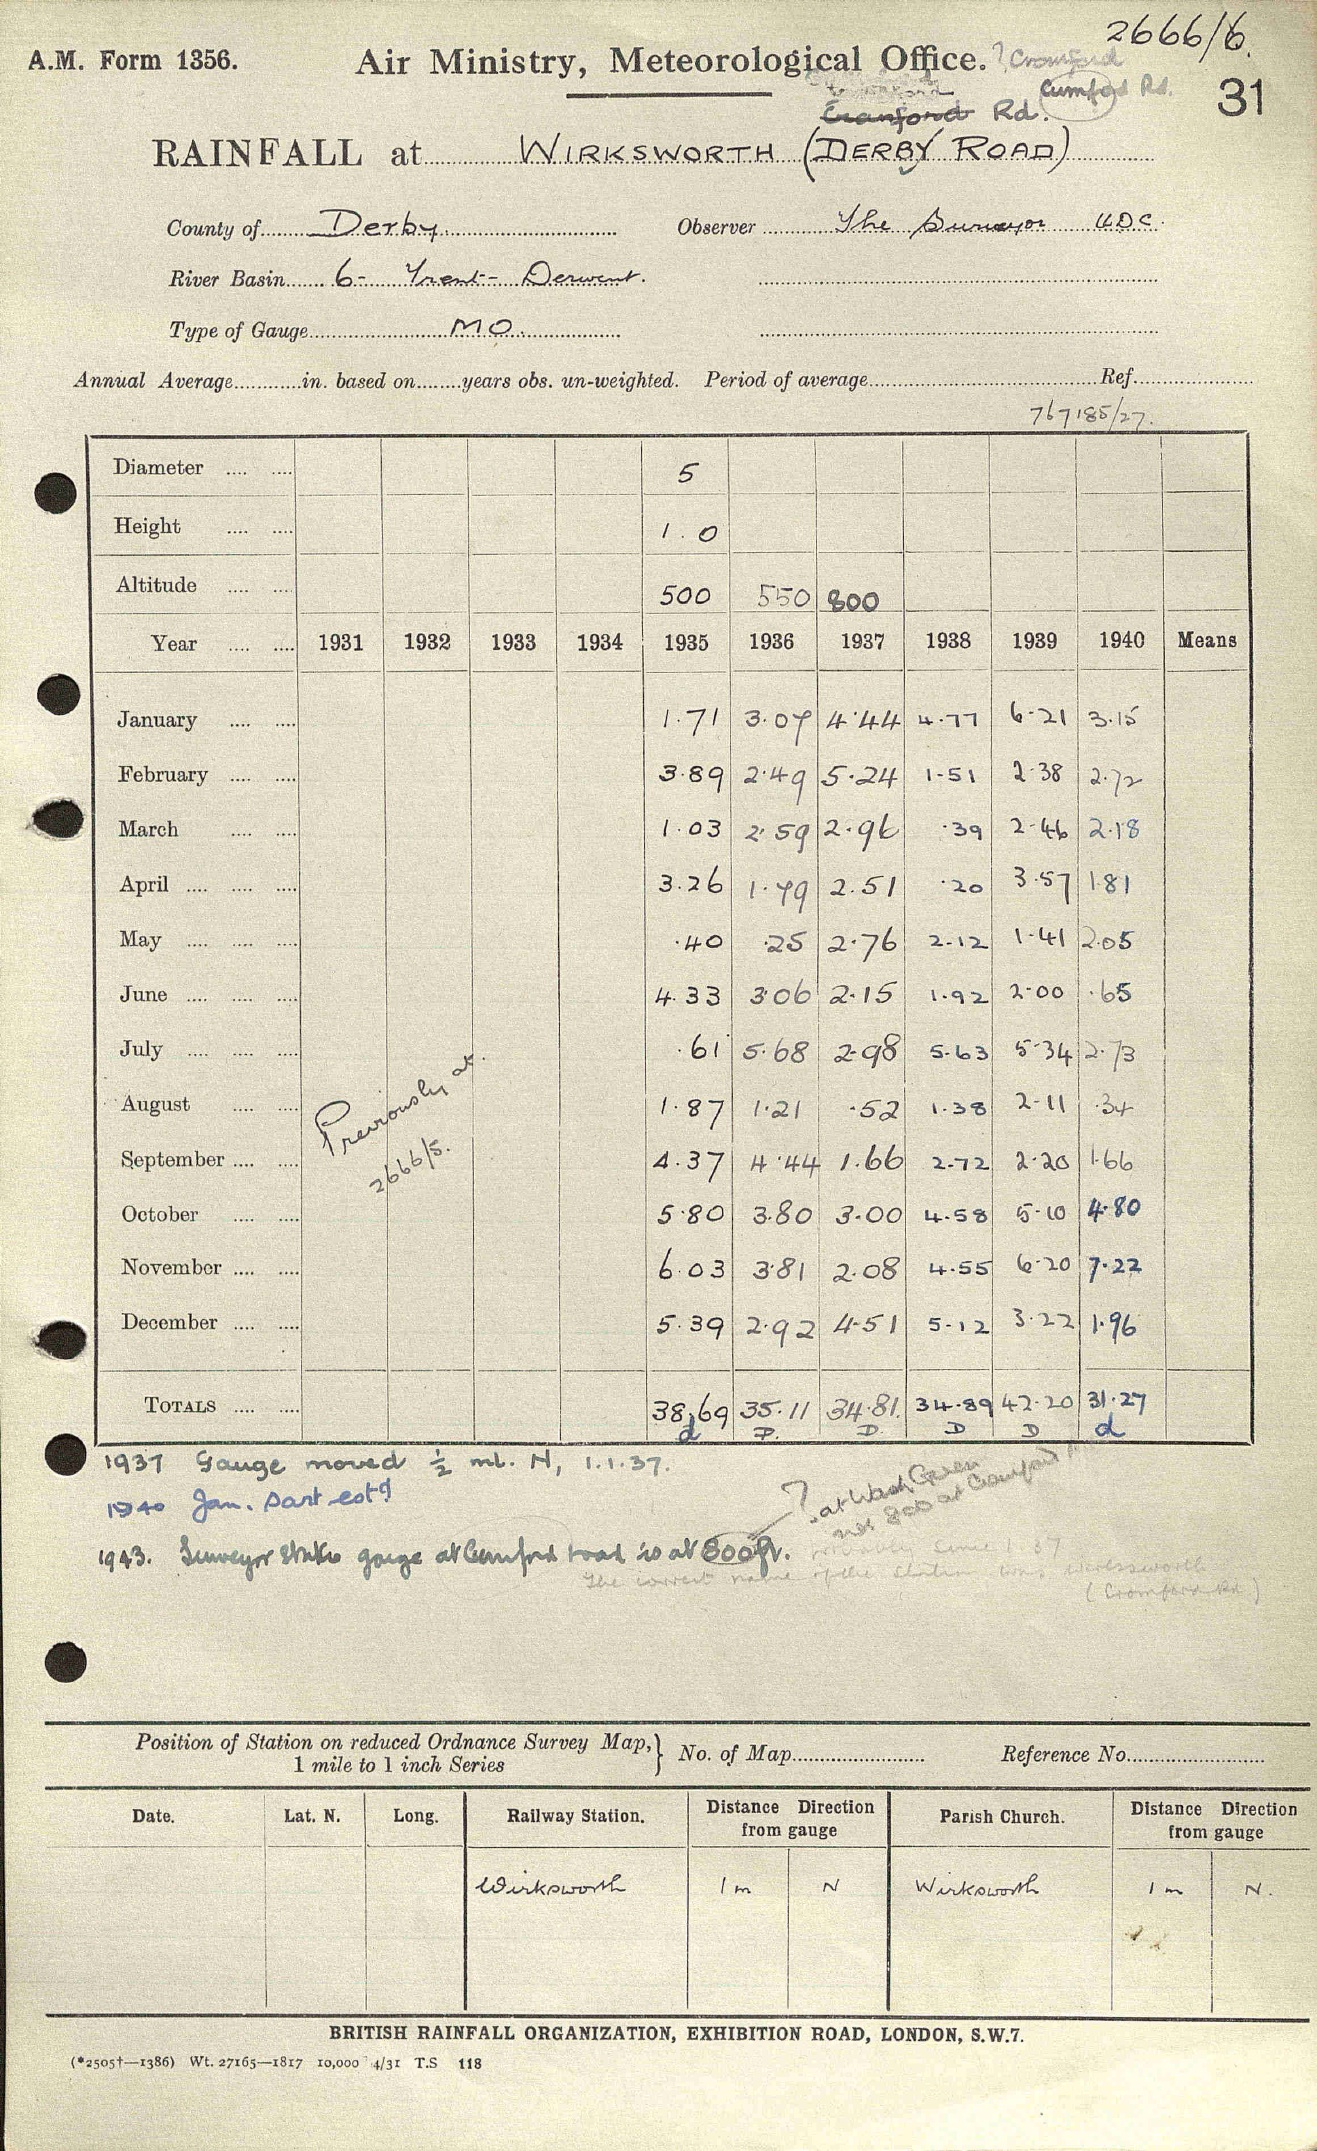 2666/6.
A.M. Form 1356.
Air Ministry, Meteorological Office.
? Cromford
Cumford Rd.
31
Cranford Rd.
RAINFALL at WIRKSWORTH (DERBY ROAD)
County of Derby Observer The Surveyor UDC.
River Basin 6- Trent- Derwent.
Type of Gauge MO.
Annual Average in. based on years obs. un-weighted. Period of average Ref.
767185/27.
Diameter 5
Height 1.0
Altitude 500 550 800
Year 1931 1932 1933 1934 1935 1936 1937 1938 1939 1940 Means
January 1.71 3.07 4.44 4.77 6.21 3.15
February 3.89 2.49 5.24 1.51 2.38 2.72
March 1.03 2.59 2.96 .39 2.46 2.18
April 3.26 1.79 2.51 .20 3.57 1.81
May .40 .25 2.76 2.12 1.41 2.05
June 4.33 3.06 2.15 1.92 2.00 .65
July .61 5.68 2.98 5.63 5.34 2.73
August 1.87 1.21 .52 1.38 2.11 .34
September 4.37 4.44 1.66 2.72 2.20 1.66
October 5.80 3.80 3.00 4.58 5.10 4.80
November 6.03 3.81 2.08 4.55 6.20 7.22
December 5.39 2.92 4.51 5.12 3.22 1.96
Previously at
2666/5.
TOTALS 38.69 35.11 34.81 34.89 42.20 31.27
d D. D. D D d
1937 Gauge moved ½ ml. N, 1.1.37.
1940 Jan. part estd
? at Wash Green
not 800 at Cromford
1943. Surveyor states gauge at Cumford road is at 800ft.
probably since 1.37
The correct name of the station was Wirksworth
(Cromford Rd)
Position of Station on reduced Ordnance Survey Map,
1 mile to 1 inch Series
No. of Map Reference No.
Date. Lat. N. Long. Railway Station. Distance Direction from gauge Parish Church. Distance Direction from gauge
Wirksworth 1 m N Wirksworth 1 m N.
BRITISH RAINFALL ORGANIZATION, EXHIBITION ROAD, LONDON, S.W.7.
(*2505†—1386) Wt. 27165—1817 10,000 4/31 T.S 118